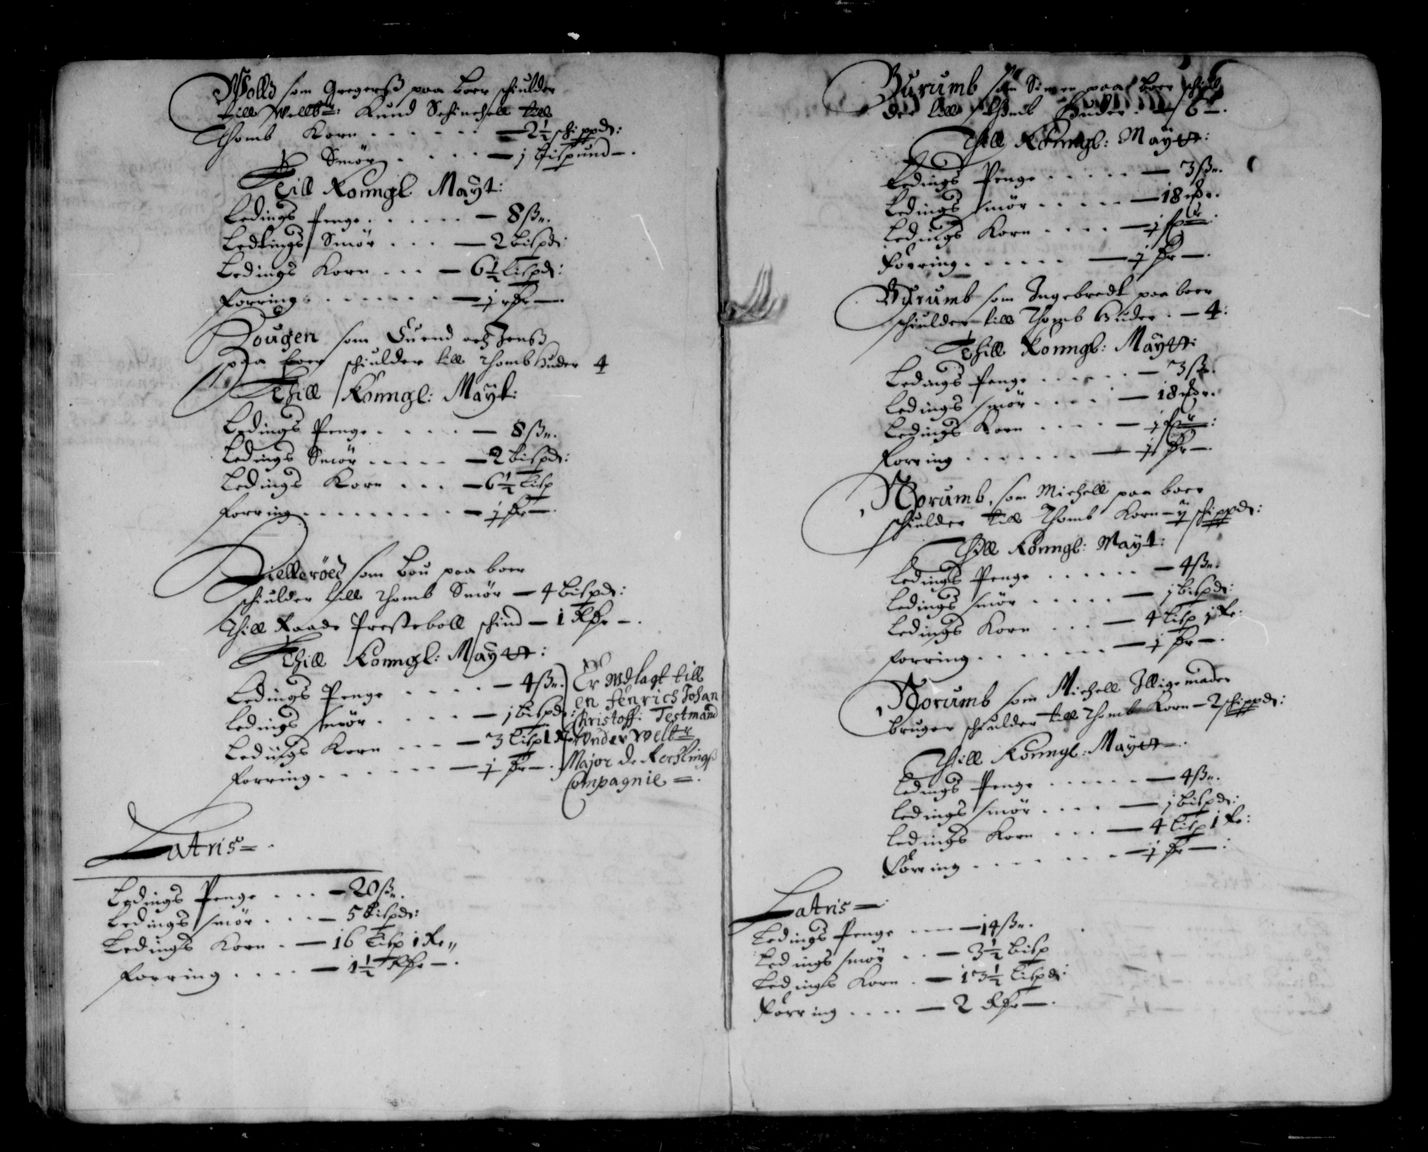 Wolld som Gregerß paa boer schiulder
till Welb: Knud Schinchell till
Thomb Korn - 2½ schippd:
Smør - j bispund -.
Till Konngl. Mayt:
Ledings Penge - 8 ß.
Ledings Smør - 2 bispd:
Ledings Korn - 6½ Lispd:
Forring - j
Hougen som Suend och Jenß
paa boer schiulder till Thomb huder 4
Thill Konngl: Mayt:
Ledings Penge - 8 ß.
Ledings Smør - 2 bispd:
Ledings Korn - 6½ Lisp
Forring - j
som Bou paa boer
schiulder till Thomb Smør - 4 bispd:
Thill Raade Presteboll schind - 1
Thill Konngl: Maytt:
Ledings Penge - 4 ß.
Ledings smør - j bispd:
Ledings Korn - 3 Lisp 1
Forring - j
Er Vdlagt till
en fenrich Johan
Christoff: Testmand
vnder Welb:
Major de Kerhlings
Compagnie =.
Latris =.
Ledings Penge - 20 ß.
Ledings smør - 5 bispd:
Ledings Korn - 16 Lisp 1
Forring - 1½
Burumb som paa boer schiul
der till Thomb Huder - 6 -.
Thill Konngl: Maytt:
Ledings Penge - 3 ß.
Ledings smør - 18
Ledings Korn - j
Forring - j
Burumb som Ingebredt paa boer
schiulder till Thomb huder - 4:
Thill Konngl: Maytt:
Ledings Penge - 3 ß.
Ledings smør - 18
Ledings Korn - j
Forring - j
Norumb som Michell paa boer
schiulder till Thomb Korn - ij schippd:
Thill Konngl: Mayt:
Ledings Penge - 4 ß.
Ledings smør - j bispd:
Ledings Korn - 4 Lisp 1
Forring - j
Norumb som Michell
bruger schiulder till Thomb Korn - 2 schippd:
Thill Konngl: Maytt -.
Ledings Penge - 4 ß.
Ledings smør - j bispd:
Ledings Korn - 4 Lisp 1
Forring - j
Latris =:
Ledings Penge - 14 ß.
Ledings smør - 3½ bisp
Ledings Korn - 13½ Lispd:
Forring - 2